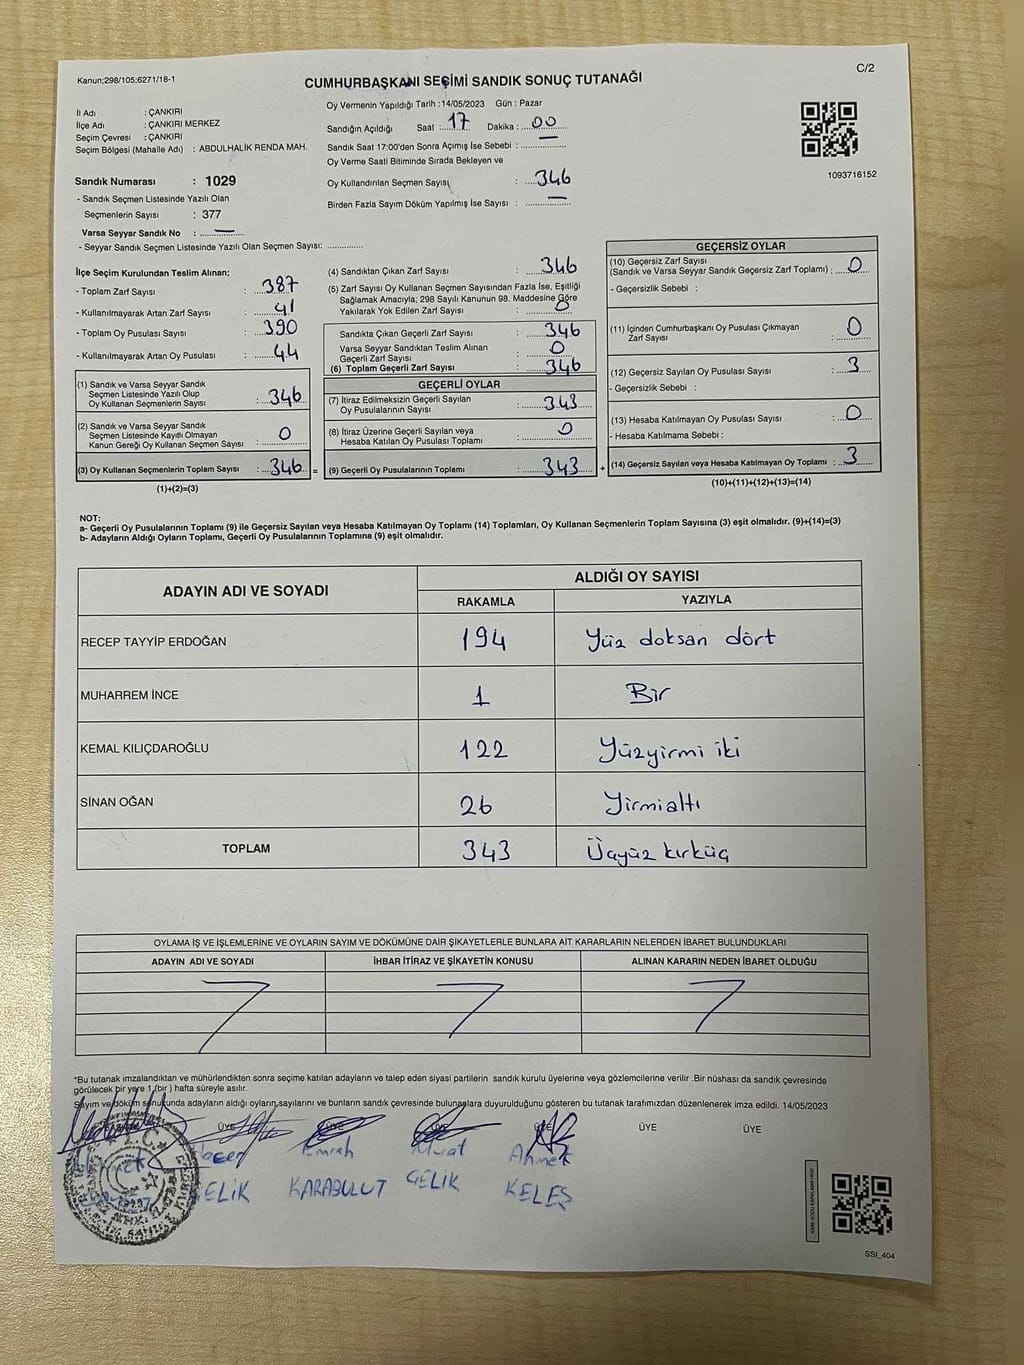 Kanun;298/105;6271/18-1
C/2
CUMHURBAŞKANI SEÇİMİ SANDIK SONUÇ TUTANAĞI
İl Adı : ÇANKIRI
İlçe Adı : ÇANKIRI MERKEZ
Seçim Çevresi : ÇANKIRI
Seçim Bölgesi (Mahalle Adı) : ABDULHALİK RENDA MAH.
Sandık Numarası : 1029
- Sandık Seçmen Listesinde Yazılı Olan
Seçmenlerin Sayısı : 377
Varsa Seyyar Sandık No : —
- Seyyar Sandık Seçmen Listesinde Yazılı Olan Seçmen Sayısı: ..............
Oy Vermenin Yapıldığı Tarih : 14/05/2023 Gün : Pazar
Sandığın Açıldığı Saat : 17 Dakika : 00
Sandık Saat 17:00'den Sonra Açımış İse Sebebi : —
Oy Verme Saati Bitiminde Sırada Bekleyen ve
Oy Kullandırılan Seçmen Sayısı : 346
Birden Fazla Sayım Döküm Yapılmış İse Sayısı : —
1093716152
İlçe Seçim Kurulundan Teslim Alınan;
- Toplam Zarf Sayısı : 387
- Kullanılmayarak Artan Zarf Sayısı : 41
- Toplam Oy Pusulası Sayısı : 390
- Kullanılmayarak Artan Oy Pusulası : 44
(1) Sandık ve Varsa Seyyar Sandık
Seçmen Listesinde Yazılı Olup
Oy Kullanan Seçmenlerin Sayısı : 346
(2) Sandık ve Varsa Seyyar Sandık
Seçmen Listesinde Kayıtlı Olmayan
Kanun Gereği Oy Kullanan Seçmen Sayısı : 0
(3) Oy Kullanan Seçmenlerin Toplam Sayısı : 346 =
(1)+(2)=(3)
(4) Sandıktan Çıkan Zarf Sayısı : 346
(5) Zarf Sayısı Oy Kullanan Seçmen Sayısından Fazla İse, Eşitliği
Sağlamak Amacıyla; 298 Sayılı Kanunun 98. Maddesine Göre
Yakılarak Yok Edilen Zarf Sayısı : 0
Sandıkta Çıkan Geçerli Zarf Sayısı : 346
Varsa Seyyar Sandıktan Teslim Alınan
Geçerli Zarf Sayısı : 0
(6) Toplam Geçerli Zarf Sayısı : 346
GEÇERLİ OYLAR
(7) İtiraz Edilmeksizin Geçerli Sayılan
Oy Pusulalarının Sayısı : 343
(8) İtiraz Üzerine Geçerli Sayılan veya
Hesaba Katılan Oy Pusulası Toplamı : 0
(9) Geçerli Oy Pusulalarının Toplamı : 343 +
GEÇERSİZ OYLAR
(10) Geçersiz Zarf Sayısı
(Sandık ve Varsa Seyyar Sandık Geçersiz Zarf Toplamı) : 0
- Geçersizlik Sebebi :
(11) İçinden Cumhurbaşkanı Oy Pusulası Çıkmayan
Zarf Sayısı : 0
(12) Geçersiz Sayılan Oy Pusulası Sayısı : 3
- Geçersizlik Sebebi :
(13) Hesaba Katılmayan Oy Pusulası Sayısı : 0
- Hesaba Katılmama Sebebi :
(14) Geçersiz Sayılan veya Hesaba Katılmayan Oy Toplamı : 3
(10)+(11)+(12)+(13)=(14)
NOT:
a- Geçerli Oy Pusulalarının Toplamı (9) ile Geçersiz Sayılan veya Hesaba Katılmayan Oy Toplamı (14) Toplamları, Oy Kullanan Seçmenlerin Toplam Sayısına (3) eşit olmalıdır. (9)+(14)=(3)
b- Adayların Aldığı Oyların Toplamı, Geçerli Oy Pusulalarının Toplamına (9) eşit olmalıdır.
ADAYIN ADI VE SOYADI
ALDIĞI OY SAYISI
RAKAMLA YAZIYLA
RECEP TAYYİP ERDOĞAN 194 Yüz doksan dört
MUHARREM İNCE 1 Bir
KEMAL KILIÇDAROĞLU 122 Yüzyirmi iki
SİNAN OĞAN 26 Yirmialtı
TOPLAM 343 Üçyüz kırküç
OYLAMA İŞ VE İŞLEMLERİNE VE OYLARIN SAYIM VE DÖKÜMÜNE DAİR ŞİKAYETLERLE BUNLARA AİT KARARLARIN NELERDEN İBARET BULUNDUKLARI
ADAYIN ADI VE SOYADI İHBAR İTİRAZ VE ŞİKAYETİN KONUSU ALINAN KARARIN NEDEN İBARET OLDUĞU
*Bu tutanak imzalandıktan ve mühürlendikten sonra seçime katılan adayların ve talep eden siyasi partilerin sandık kurulu üyelerine veya gözlemcilerine verilir .Bir nüshası da sandık çevresinde
görülecek bir yere 1 (bir ) hafta süreyle asılır.
Sayım ve döküm sonucunda adayların aldığı oyların sayılarını ve bunların sandık çevresinde bulunanlara duyurulduğunu gösteren bu tutanak tarafımızdan düzenlenerek imza edildi. 14/05/2023
ÜYE ÜYE ÜYE
Emrah Murat Ahmet
KARABULUT ÇELİK KELEŞ
T.C.
SSI_404